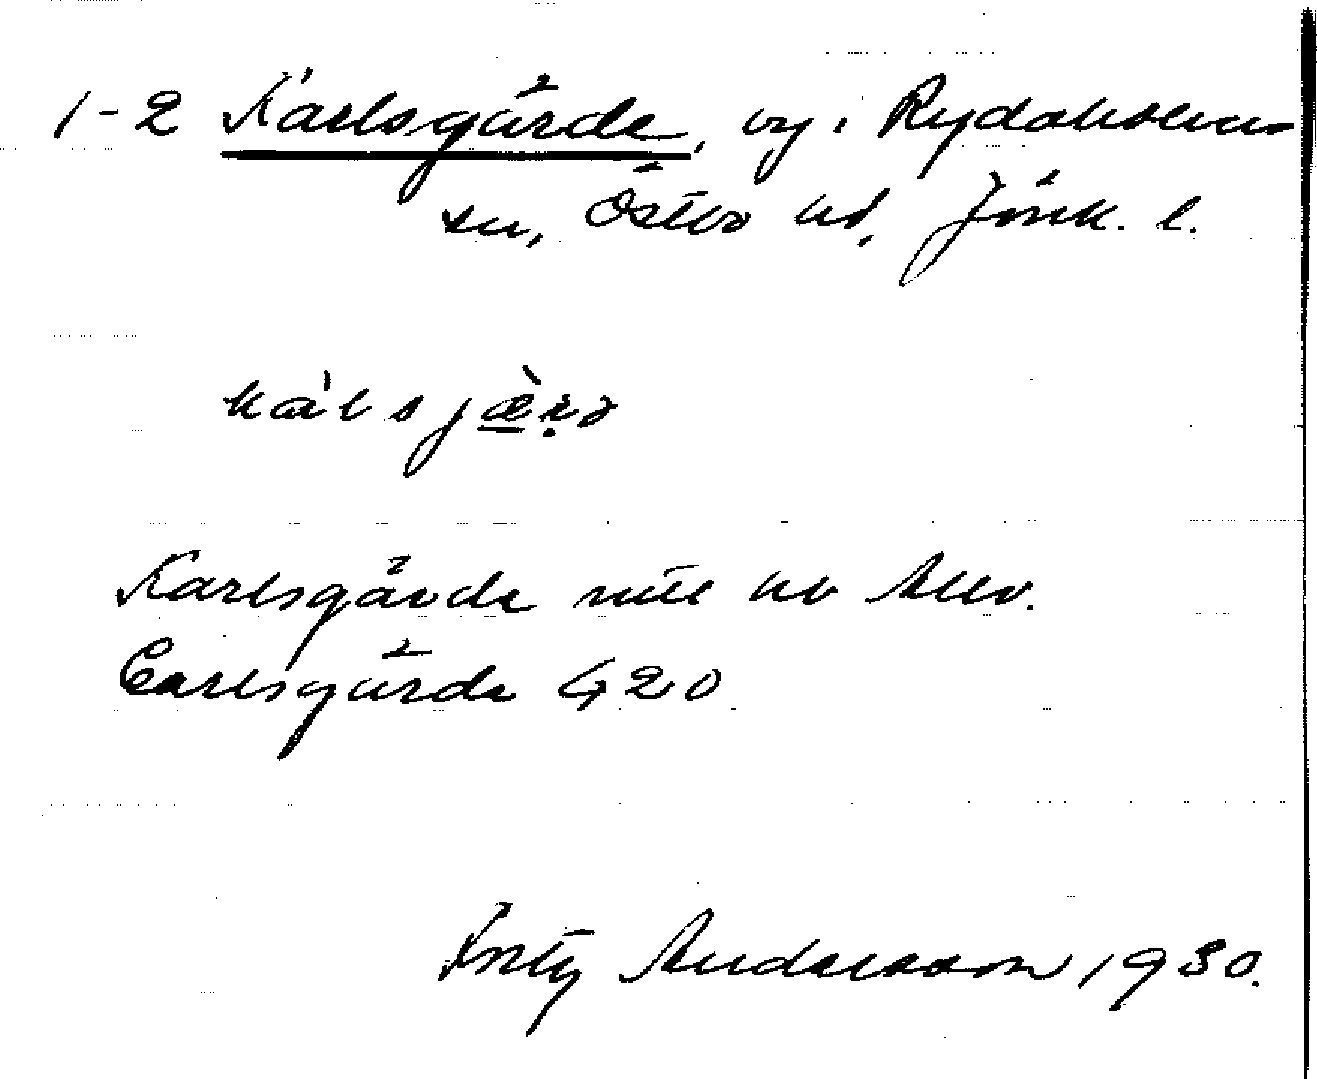 1-2 Karlsgärde, by i Rydaholms
sn, Östbo hd, Jönk. l.
kàl s jæ̀rd
Karlsgärde mtl
Carlsgärde G 20
Fritz Andersson 1930.